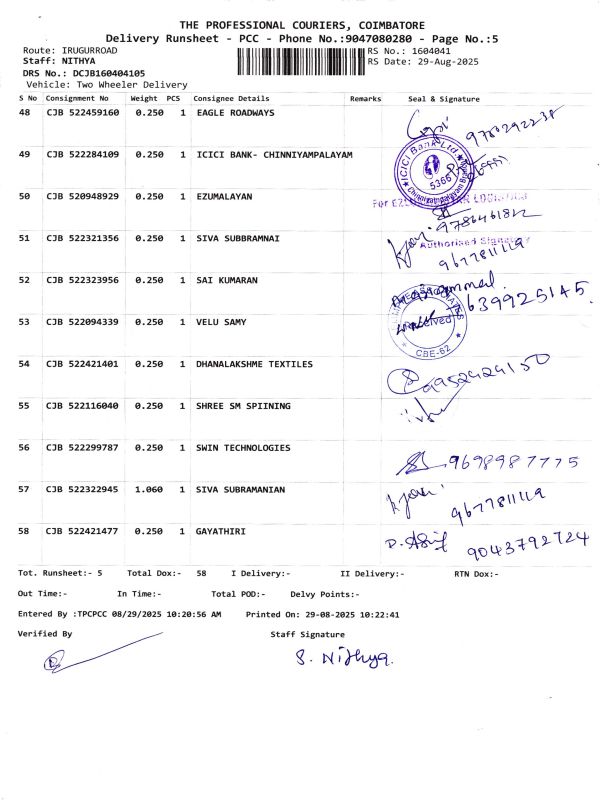 THE PROFESSIONAL COURIERS, COIMBATORE
Delivery Runsheet - PCC - Phone No.:9047080280 - Page No.:5
Route: IRUGURROAD RS No.: 1604041
Staff: NITHYA RS Date: 29-Aug-2025
DRS No.: DCJB160404105
Vehicle: Two Wheeler Delivery
S No Consignment No Weight PCS Consignee Details Remarks Seal & Signature
48 CJB 522459160 0.250 1 EAGLE ROADWAYS
9780292238
49 CJB 522284109 0.250 1 ICICI BANK- CHINNIYAMPALAYAM
ICICI Bank Ltd
5366
50 CJB 520948929 0.250 1 EZUMALAYAN
For
51 CJB 522321356 0.250 1 SIVA SUBBRAMNAI
Authorised Signatory
9677811119
52 CJB 522323956 0.250 1 SAI KUMARAN
639925145
53 CJB 522094339 0.250 1 VELU SAMY
Received
CBE-62
54 CJB 522421401 0.250 1 DHANALAKSHME TEXTILES
9952424150
55 CJB 522116040 0.250 1 SHREE SM SPIINING
56 CJB 522299787 0.250 1 SWIN TECHNOLOGIES
9698987775
57 CJB 522322945 1.060 1 SIVA SUBRAMANIAN
9677811119
58 CJB 522421477 0.250 1 GAYATHIRI
9043792724
Tot. Runsheet:- 5 Total Dox:- 58 I Delivery:- II Delivery:- RTN Dox:-
Out Time:- In Time:- Total POD:- Delvy Points:-
Entered By :TPCPCC 08/29/2025 10:20:56 AM Printed On: 29-08-2025 10:22:41
Verified By Staff Signature
S. Nithya.